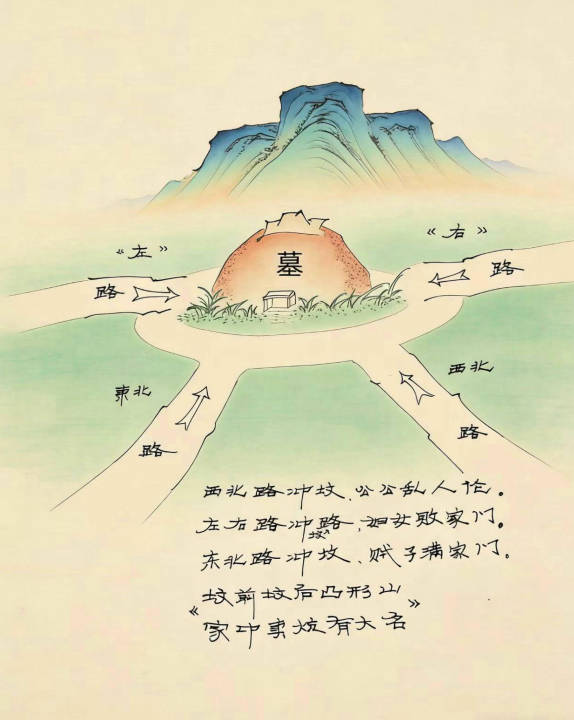 《左》
《右》
墓
路
路
东北
西北
路
路
西北路冲坟、公公乱人伦。
左右路冲路坟、妇女败家门。
东北路冲坟、贼子满家门。
坟前坟后凸形山
《家中卖炕有大名》